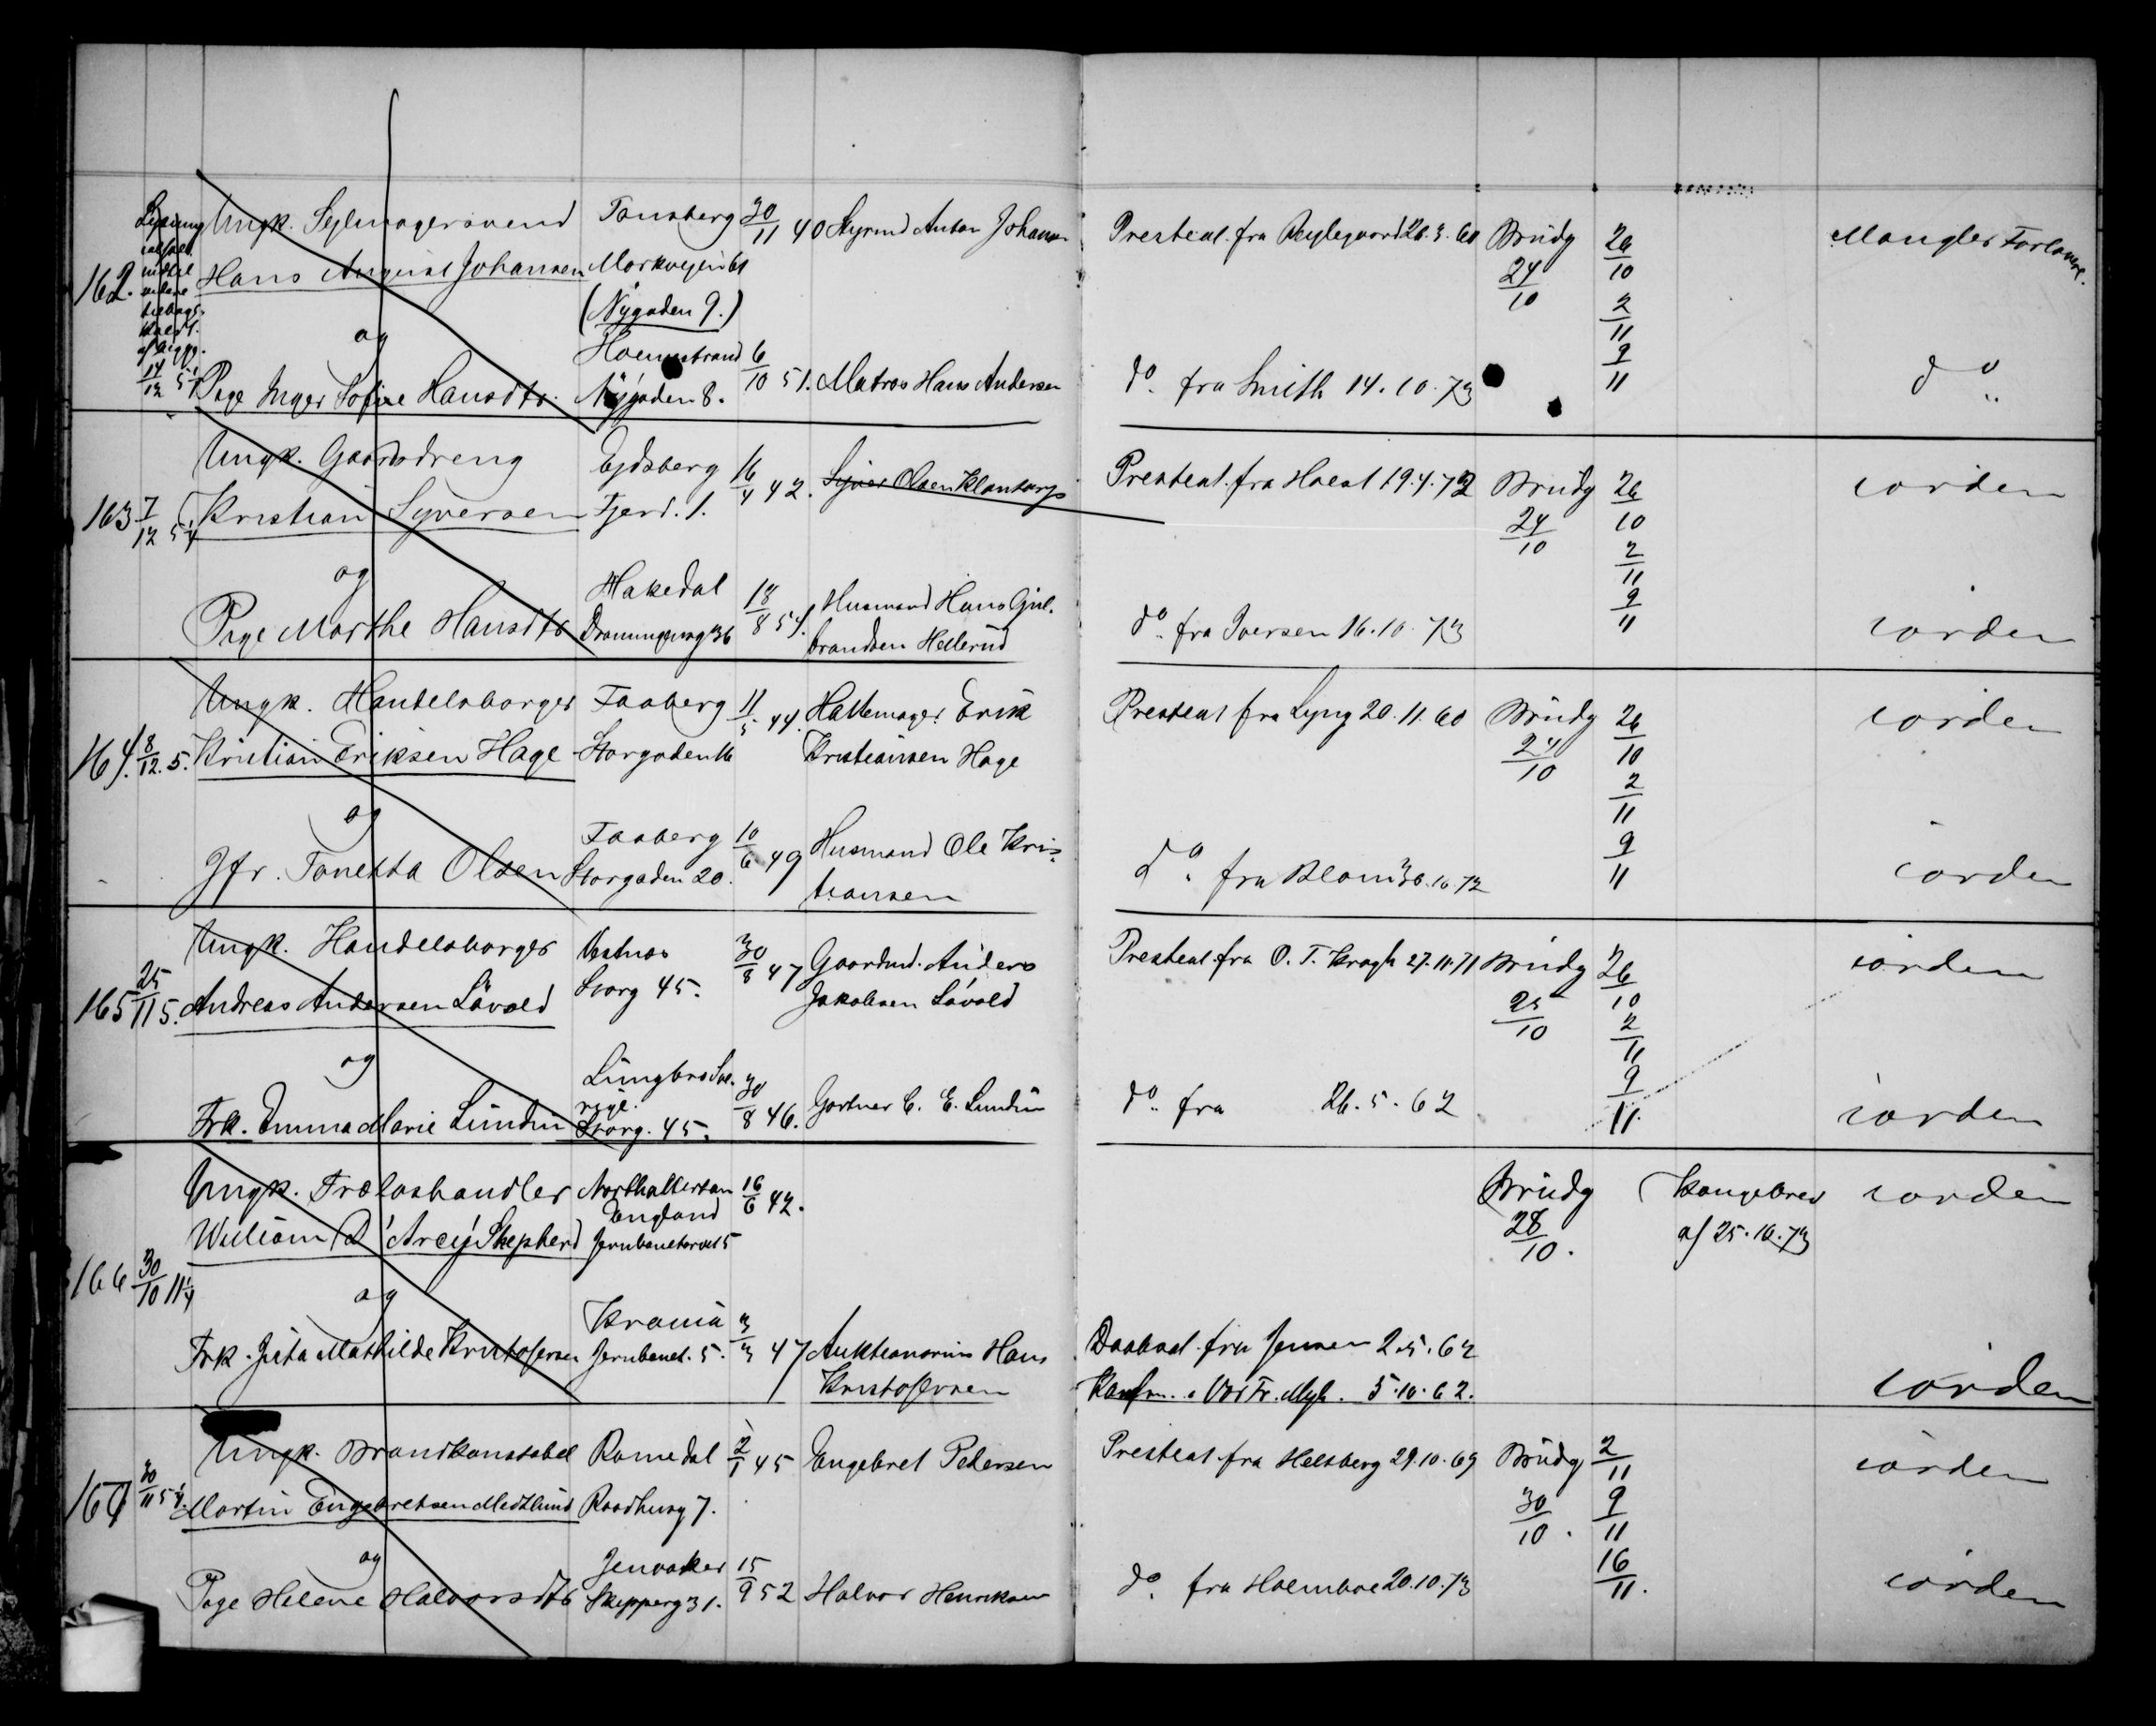 162. Ungk. Sejlmagersvend Tønsberg 30/11 40 Styrmd Anton Johansen Presteat. fra 20.3.60 Brudg 26/10 Mangler Forlovere.
Lysning
14/12 5 1/4
Hans August Johansen Markvejen 61 24/10 2/11
(Nygaden 9.)
og Holmestrand 6/10 51. 9/11
Pige Inger Sofie Hansdtr. Nygaden 8. Matros Hans Andersen do. fra Smith 14.10.73 do
163 7/12 5 1/4 Ungk. Gaardsdreng Ejdsberg 16/4 42. Syver Olsen Presteat. fra Holst 19.4.72 Brudg 26/10 iorden
Kristian Syversen Fjerd. 1. 24/10 2/11
og Hakedal 18/8 54. Husmand Hans Gul- 9/11
Pige Marthe Hansdtr Dronningensg 36 brandsen Hellerud do. fra Iversen 16.10.73 iorden
164. 8/12. 5. Ungk. Handelsborger Faaberg 11/5 44. Hattemager Erik Presteat fra Lyng 20.11.60 Brudg 26/10 iorden
Kristian Eriksen Hage Storgaden 16 Kristiansen Hage 24/10 2/11
og Faaberg 10/6 49 Husmand Ole Kris- 9/11
Jfr. Tonetta Olsen Storgaden 20. tiansen do. fra Blom 30.10.72 iorden
165 25/11 5. Ungk. Handelsborger Vestnes 30/8 47 Gaardmd. Anders Presteat fra O. T. Krogh 27.11.71 Brudg 26/10 iorden
Andreas Andersen Løvold Storg 45. Jakobsen Løvold 25/10 2/11
og Ljungbro Sve- 30/8 46. 9/11
rige.
Frk. Emma Marie Lundin Storg. 45. Gartner C. E. Lundin do. fra 26.5.62 iorden
166 30/10 11 1/4 Ungk. Trælasthandler Northallerton 16/6 42. Brudg Kongebrev iorden
England
William D'Arcy Shepherd Jernbanetorvet 5 28/10. af 25.10.73
og Krania 3/3 47 Auktionarius Hans Daabsat. fra Jensen 2.5.62
Frk. Jula Mathilde Kristofersen Jernbanet. 5. Kristofersen Konfm. i Vor Fr. Mgh. 5.10.62. iorden
167 30/11 5 1/4. Ungk. Brandkonstabel Romedal 2/1 45 Engebret Pedersen Presteat fra Helsberg 29.10.69 Brudg 2/11 iorden
Martin Engebretsen Medtlund Raadhusg 7. 30/10. 9/11
og Jevnaker 15/9 52 Halvor Henriksen 16/11.
Pige Helene Halvorsdtr Skipperg 31. do. fra Holmboe 20.10.73 iorden